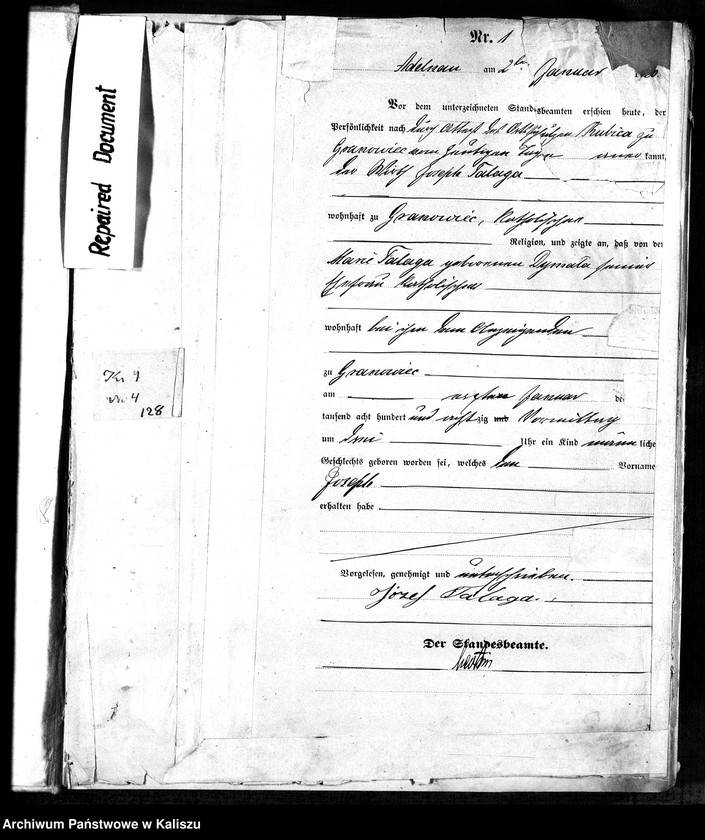 Repaired Document
Nr. 1
Adelnau am 2ten Januar
Vor dem unterzeichneten Standesbeamten erschien heute, der
Persönlichkeit nach durch Attest des Kubica zu
Granowiec vom heutigen Tage kannt,
der Wirth Joseph Talaga
wohnhaft zu Granowiec, katholischer
Religion, und zeigte an, daß von der
Marie Talaga geborenen Dymala seiner
Ehefrau katholischer
wohnhaft bei ihm dem Anzeigenden
zu Granowiec
am ersten Januar des
tausend acht hundert und achtzig und Vormittag
um drei Uhr ein Kind männliche
Geschlechts geboren worden sei, welches den Vorname
Joseph
erhalten habe
Vorgelesen, genehmigt und unterschrieben.
Józef Talaga.
Der Standesbeamte.
128
Archiwum Państwowe w Kaliszu